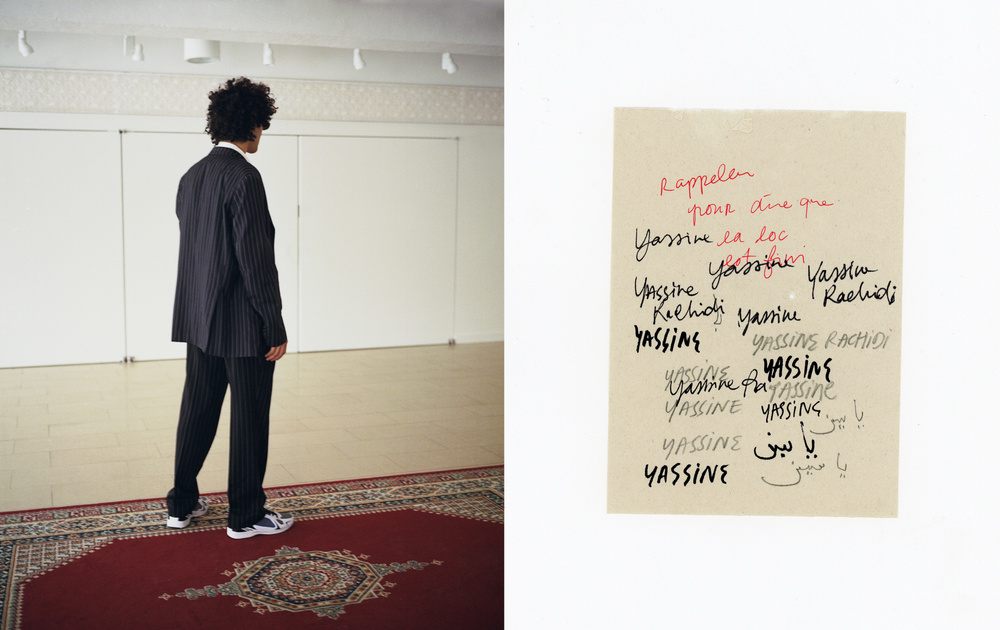 Rappeler
pour dire que
Yassine la loc
est fini
Yassine
Yassine
Rachidi
Yassine
Rachidi
Yassine
YASSINE
YASSINE RACHIDI
YASSINE
YASSINE
Yassine Ra
YASSINE
YASSINE
YASSINE
ياسين
YASSINE
ياسين
ياسين
YASSINE